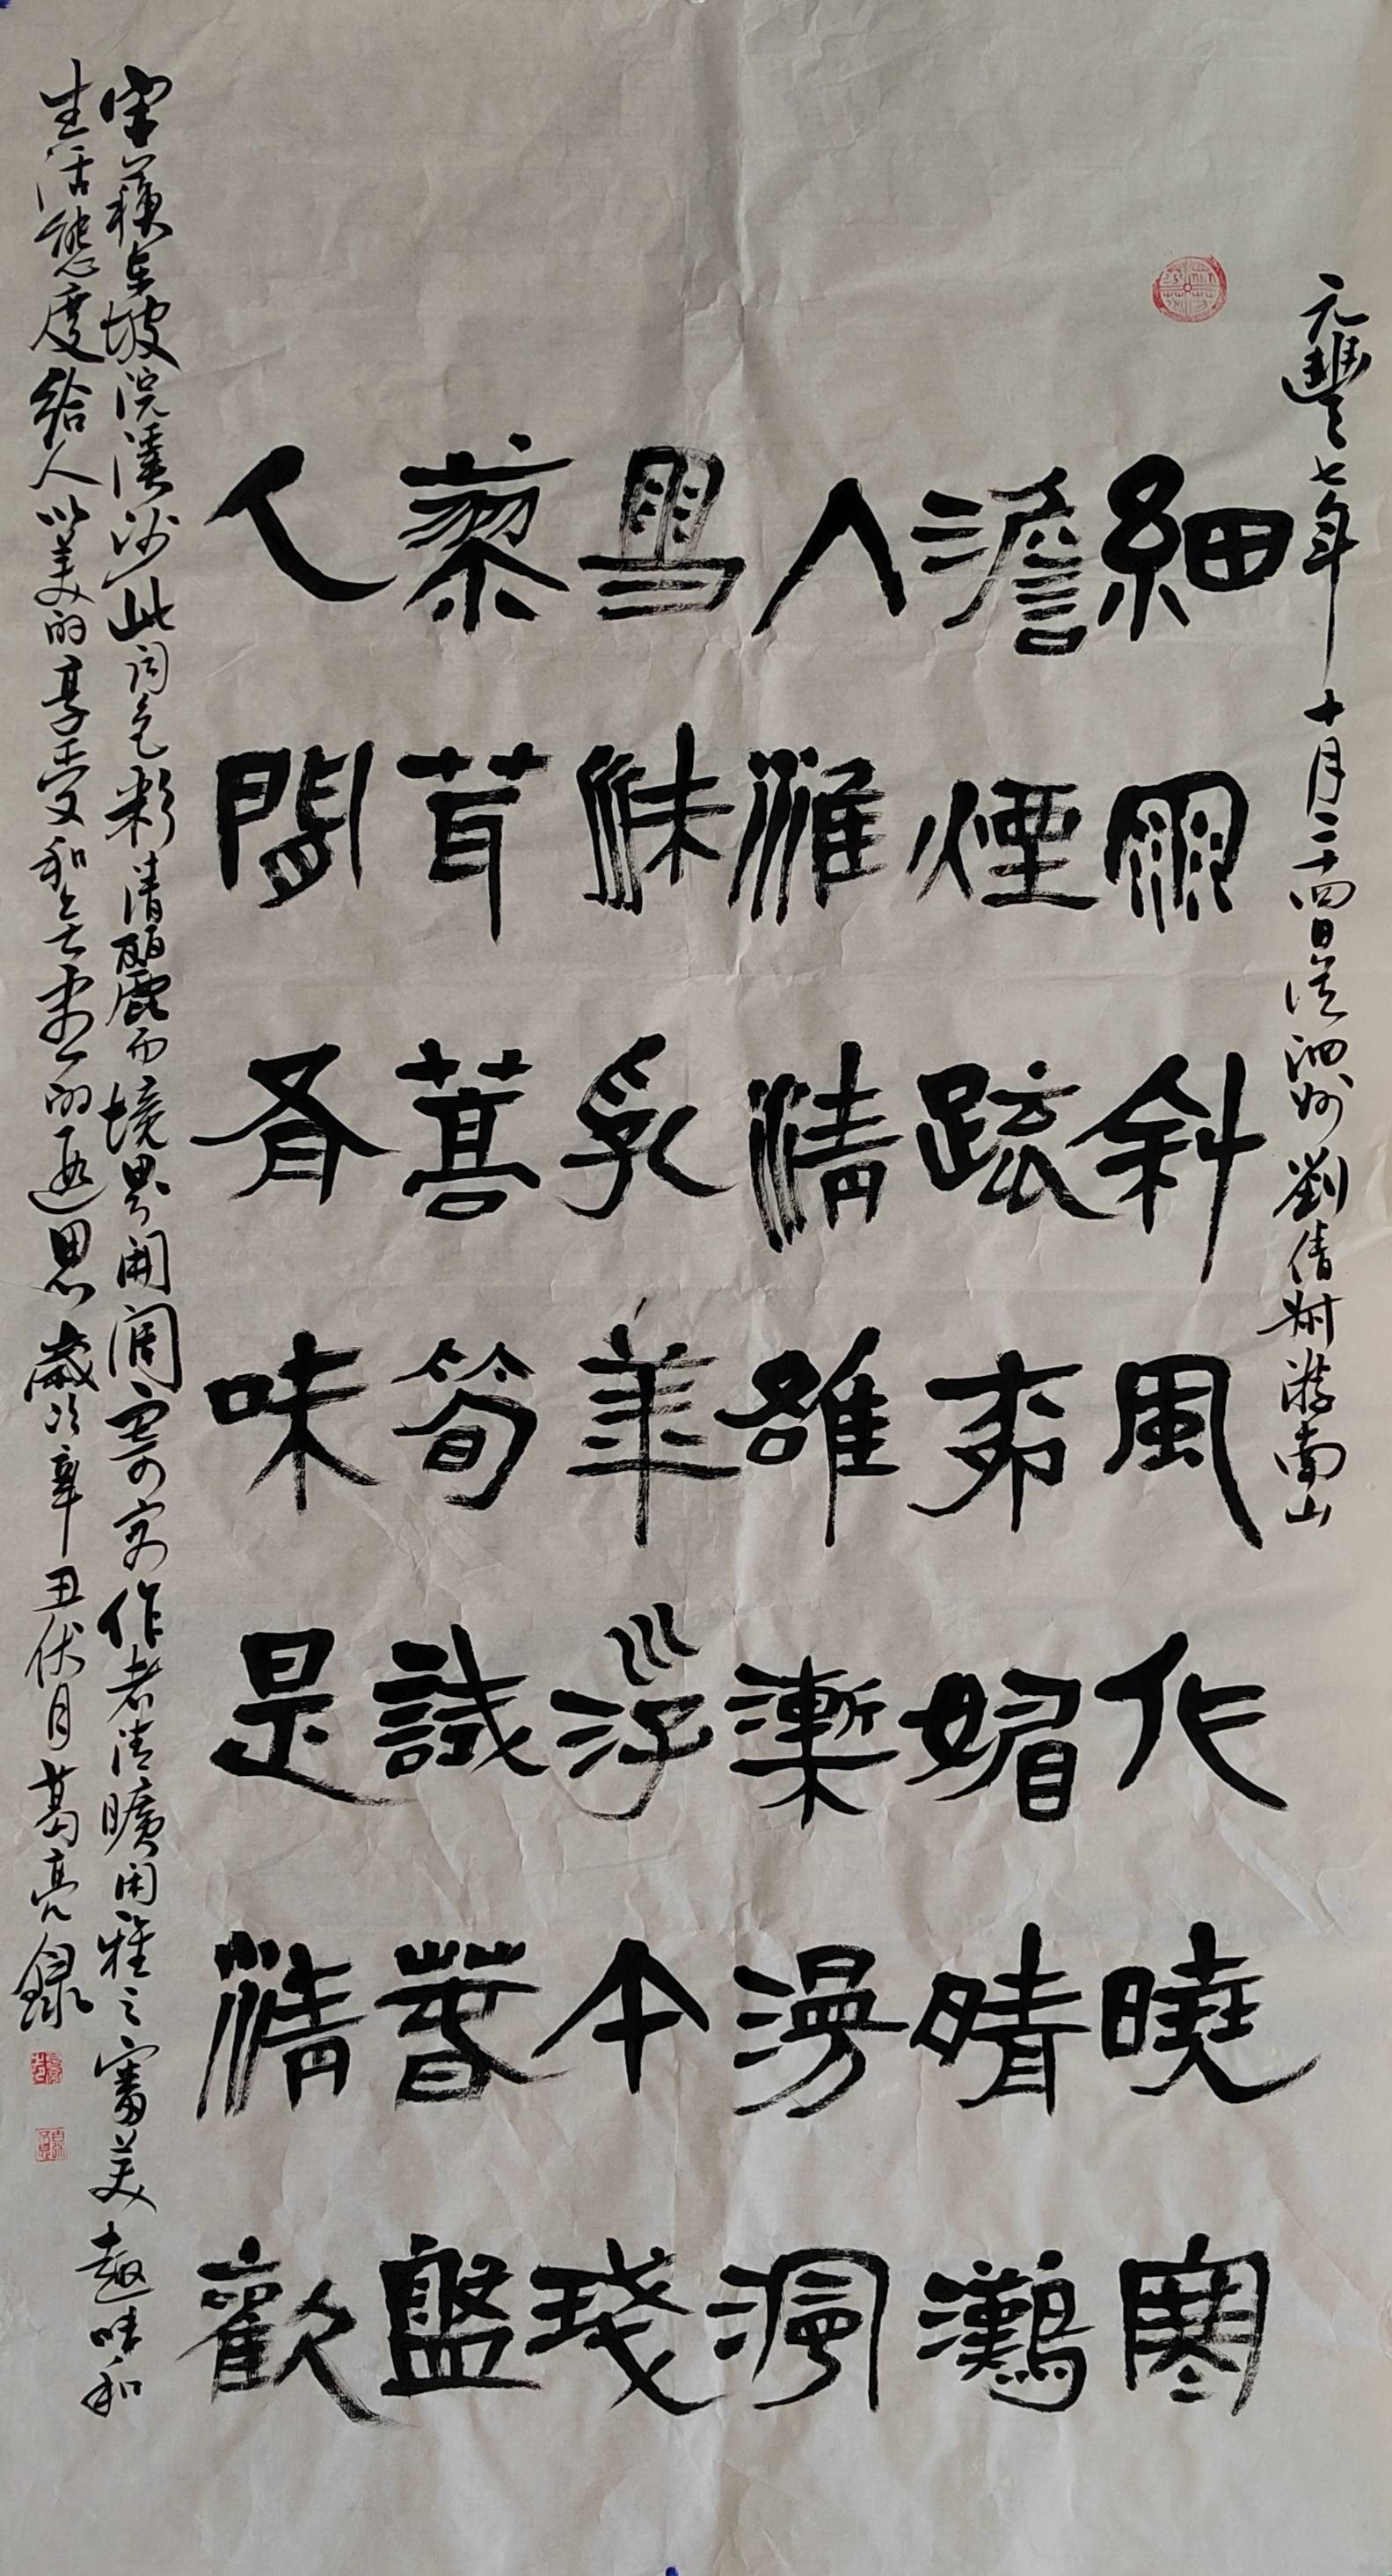 元豐七年十月二十四日從泗州劉倩叔游南山
細雨斜風作曉寒
澹煙疏柳媚晴灘
入淮清雒漸漫漫
雪沫乳華浮午琖
蓼茸蒿筍試春盤
人間有味是清歡
宋蘇東坡浣溪沙此詞色彩清麗而境界開闊寄寓作者清曠閑雅之審美趣味和
生活態度給人以美的享受和無盡的遐思歲次辛丑伏月葛亮錄